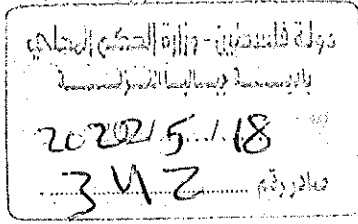 دولة فلسطين - وزارة الحكم المحلي
2022/5/18
صادر رقم 342